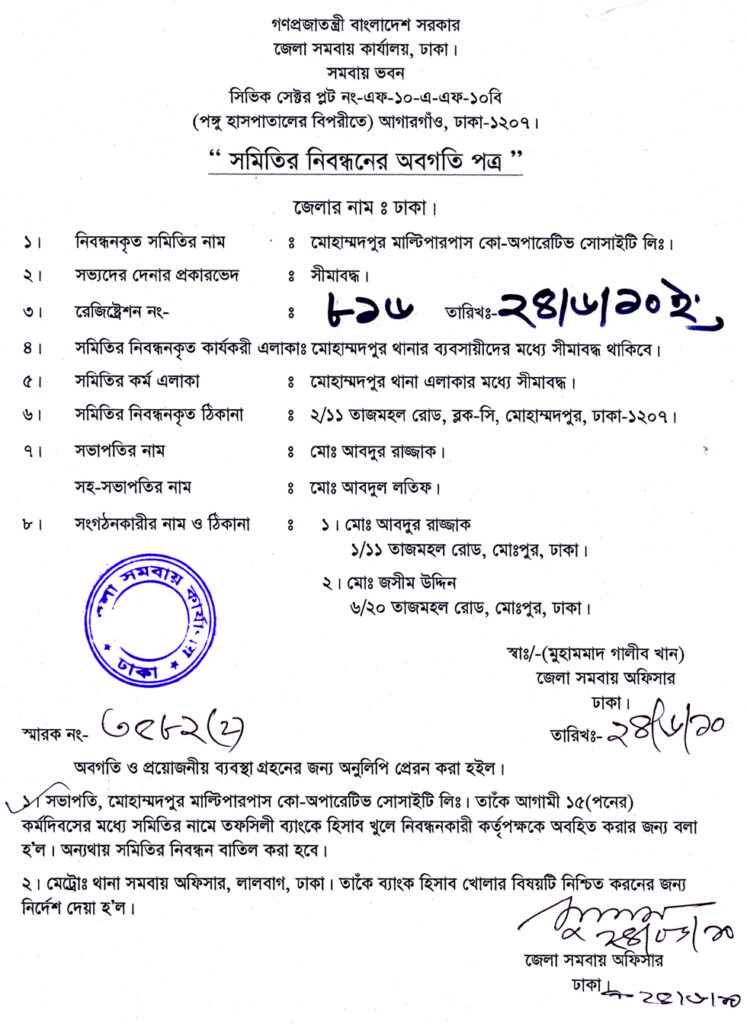 গণপ্রজাতন্ত্রী বাংলাদেশ সরকার
জেলা সমবায় কার্যালয়, ঢাকা।
সমবায় ভবন
সিভিক সেক্টর প্লট নং-এফ-১০-এ-এফ-১০বি
(পঙ্গু হাসপাতালের বিপরীতে) আগারগাঁও, ঢাকা-১২০৭।
“ সমিতির নিবন্ধনের অবগতি পত্র ”
জেলার নাম ঃ ঢাকা।
১। নিবন্ধনকৃত সমিতির নাম ঃ মোহাম্মদপুর মাল্টিপারপাস কো-অপারেটিভ সোসাইটি লিঃ।
২। সভ্যদের দেনার প্রকারভেদ ঃ সীমাবদ্ধ।
৩। রেজিষ্ট্রেশন নং- ঃ ৮১৬ তারিখঃ-২৪/৬/১০ইং
৪। সমিতির নিবন্ধনকৃত কার্যকরী এলাকাঃ মোহাম্মদপুর থানার ব্যবসায়ীদের মধ্যে সীমাবদ্ধ থাকিবে।
৫। সমিতির কর্ম এলাকা ঃ মোহাম্মদপুর থানা এলাকার মধ্যে সীমাবদ্ধ।
৬। সমিতির নিবন্ধনকৃত ঠিকানা ঃ ২/১১ তাজমহল রোড, ব্লক-সি, মোহাম্মদপুর, ঢাকা-১২০৭।
৭। সভাপতির নাম ঃ মোঃ আবদুর রাজ্জাক।
সহ-সভাপতির নাম ঃ মোঃ আবদুল লতিফ।
৮। সংগঠনকারীর নাম ও ঠিকানা ঃ ১। মোঃ আবদুর রাজ্জাক
১/১১ তাজমহল রোড, মোঃপুর, ঢাকা।
২। মোঃ জসীম উদ্দিন
৬/২০ তাজমহল রোড, মোঃপুর, ঢাকা।
সমবায় কার্যালয়
ঢাকা
স্বাঃ/-(মুহামমাদ গালীব খান)
জেলা সমবায় অফিসার
ঢাকা।
স্মারক নং- ৩৫৮২(২) তারিখঃ-২৪/৬/১০
অবগতি ও প্রয়োজনীয় ব্যবস্থা গ্রহনের জন্য অনুলিপি প্রেরন করা হইল।
১। সভাপতি, মোহাম্মদপুর মাল্টিপারপাস কো-অপারেটিভ সোসাইটি লিঃ। তাঁকে আগামী ১৫(পনের)
কর্মদিবসের মধ্যে সমিতির নামে তফসিলী ব্যাংকে হিসাব খুলে নিবন্ধনকারী কর্তৃপক্ষকে অবহিত করার জন্য বলা
হ'ল। অন্যথায় সমিতির নিবন্ধন বাতিল করা হবে।
২। মেট্রোঃ থানা সমবায় অফিসার, লালবাগ, ঢাকা। তাঁকে ব্যাংক হিসাব খোলার বিষয়টি নিশ্চিত করনের জন্য
নির্দেশ দেয়া হ'ল।
২৪/০৬/১০
জেলা সমবায় অফিসার
ঢাকা।
২৪/৬/১০